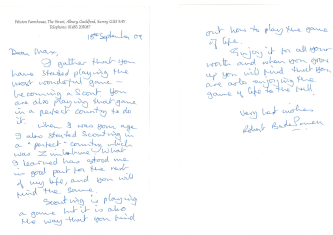 Weston Farmhouse, The Street, Albury, Guildford, Surrey GU5 9AY
Telephone: 01483 205087
18th September 09
Dear Max,
I gather that you
have started playing the
most wonderful game -
becoming a Scout. You
are also playing that game
in a perfect country to do
it.
When I was your age
I also started Scouting in
a "perfect" country which
was Zimbabwe. What
I learned has stood me
in good part for the rest
of my life, and you will
find the same.
Scouting is playing
a game but it is also
the way that you find
out how to play the game
of life.
Enjoy it to all your
worth and when you grow
up you will find that you
are able enjoying the
game of life to the full.
Very best wishes
Robert Baden Powell